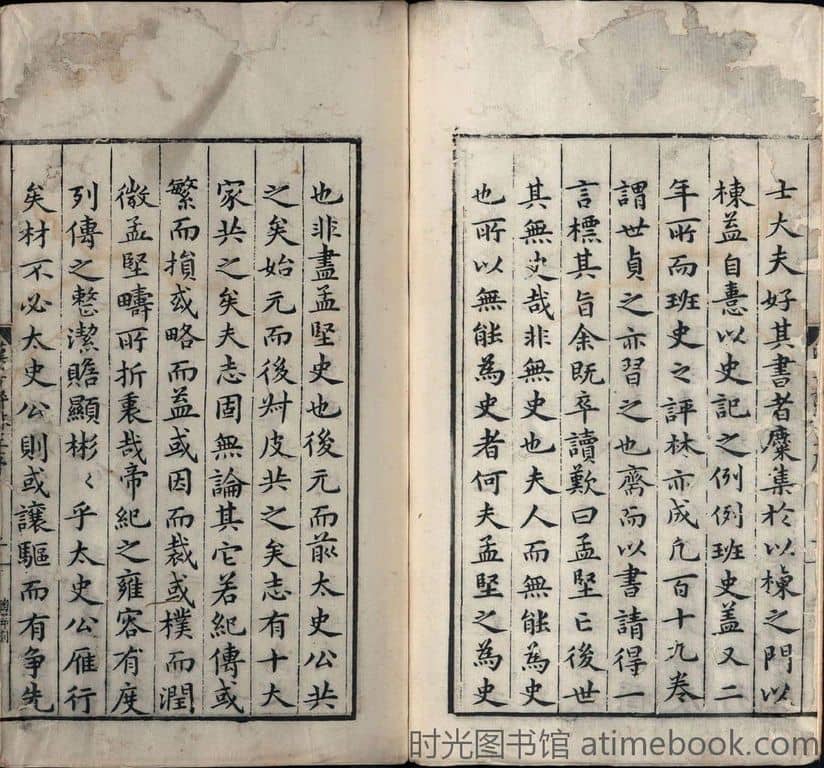 士大夫好其書者麇集於以棟之門以
棟益自憙以史記之例例班史盖又二
年所而班史之評林亦成凢百十九卷
謂世貞之亦習之也齎而以書請得一
言標其旨余既卒讀歎曰孟堅亡後世
其無史哉非無史也夫人而無能為史
也所以無能為史者何夫孟堅之為史
也非盡孟堅史也後元而前太史公共
之矣始元而後叔皮共之矣志有十大
家共之矣夫志固無論其它若紀傳或
繁而損或略而益或因而裁或樸而潤
微孟堅疇所折衷哉帝紀之雍容有度
列傳之整潔贍顯彬〻乎太史公雁行
矣材不必太史公則或讓驅而有争先
时光图书馆 atimebook.com